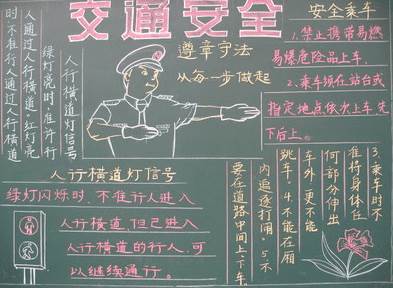 交通安全
人行横道灯信号
绿灯亮时,准许行
人通过人行横道。红灯亮
时不准行人通过人行横道
遵章守法
从每一步做起
安全乘车
1.禁止携带易燃
易爆危险品上车.
2.乘车须在站台或
指定地点依次上车,先
下后上。
3.乘车时不
准将身体任
何部分伸出
车外,更不能
跳车。4.不能在厢
内追逐打闹。5.不
要在道路中间上、下车
人行横道灯信号
绿灯闪烁时,不准行人进入
人行横道,但已进入
人行横道的行人,可
以继续通行。